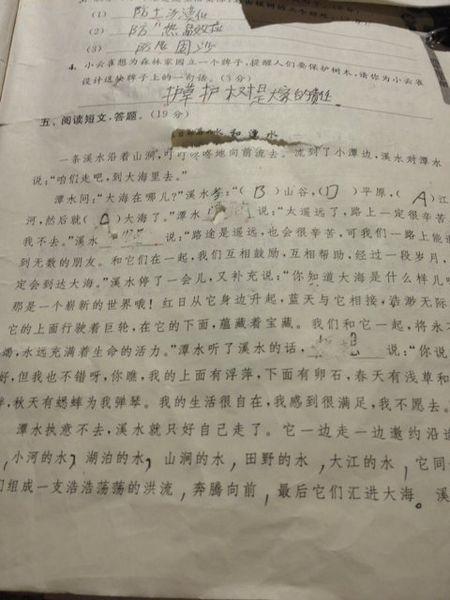 (1) 防土沙漠化
(2) 防"热岛效应
(3) 防风固沙
4. 小云雀想为森林家园立一个牌子,提醒人们要保护树木,请你为小云雀
设计这块牌子上的一句话。(3分)
护草护树是大家的责任
五、阅读短文,答题。(19分)
水和潭水
一条溪水沿着山涧,叮叮咚咚地向前流去。流到了小潭边,溪水对潭水
说:"咱们走吧,到大海里去。"
潭水问:"大海在哪儿?"溪水答:"(B)山谷,(D)平原,(A)江
河,然后就(A)大海了。"潭水 说:"太遥远了,路上一定很辛苦
我不去。"溪水 说:"路途是遥远,也会很辛苦,可我们一路上能
到无数的朋友。和它们在一起,我们互相鼓励,互相帮助,经过一段岁月,
定会到达大海。"溪水停了一会儿,又补充说:"你知道大海是什么样儿
那是一个崭新的世界哦!红日从它身边升起,蓝天与它相接,浩渺无际
它的上面行驶着巨轮,在它的下面,蕴藏着宝藏。我们和它一起,将永
竭,永远充满着生命的活力。"潭水听了溪水的话, 说:"你说
好,但我也不错呀,你瞧,我的上面有浮萍,下面有卵石,春天有浅草和
伴,秋天有蟋蟀为我弹琴。我的生活很自在,我感到很满足,我不愿去。
潭水执意不去,溪水就只好自己走了。它一边走一边邀约沿
,小河的水,湖泊的水,山涧的水,田野的水,大江的水,它同
们组成一支浩浩荡荡的洪流,奔腾向前,最后它们汇进大海。溪